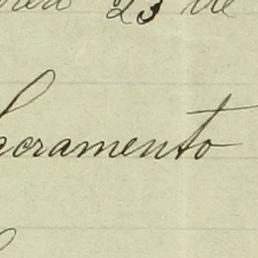 23 de
Sacramento